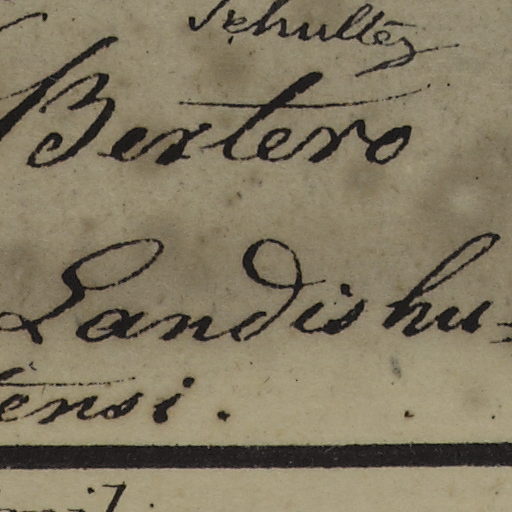 Schultes
Bertero
Landishu=
tensi.